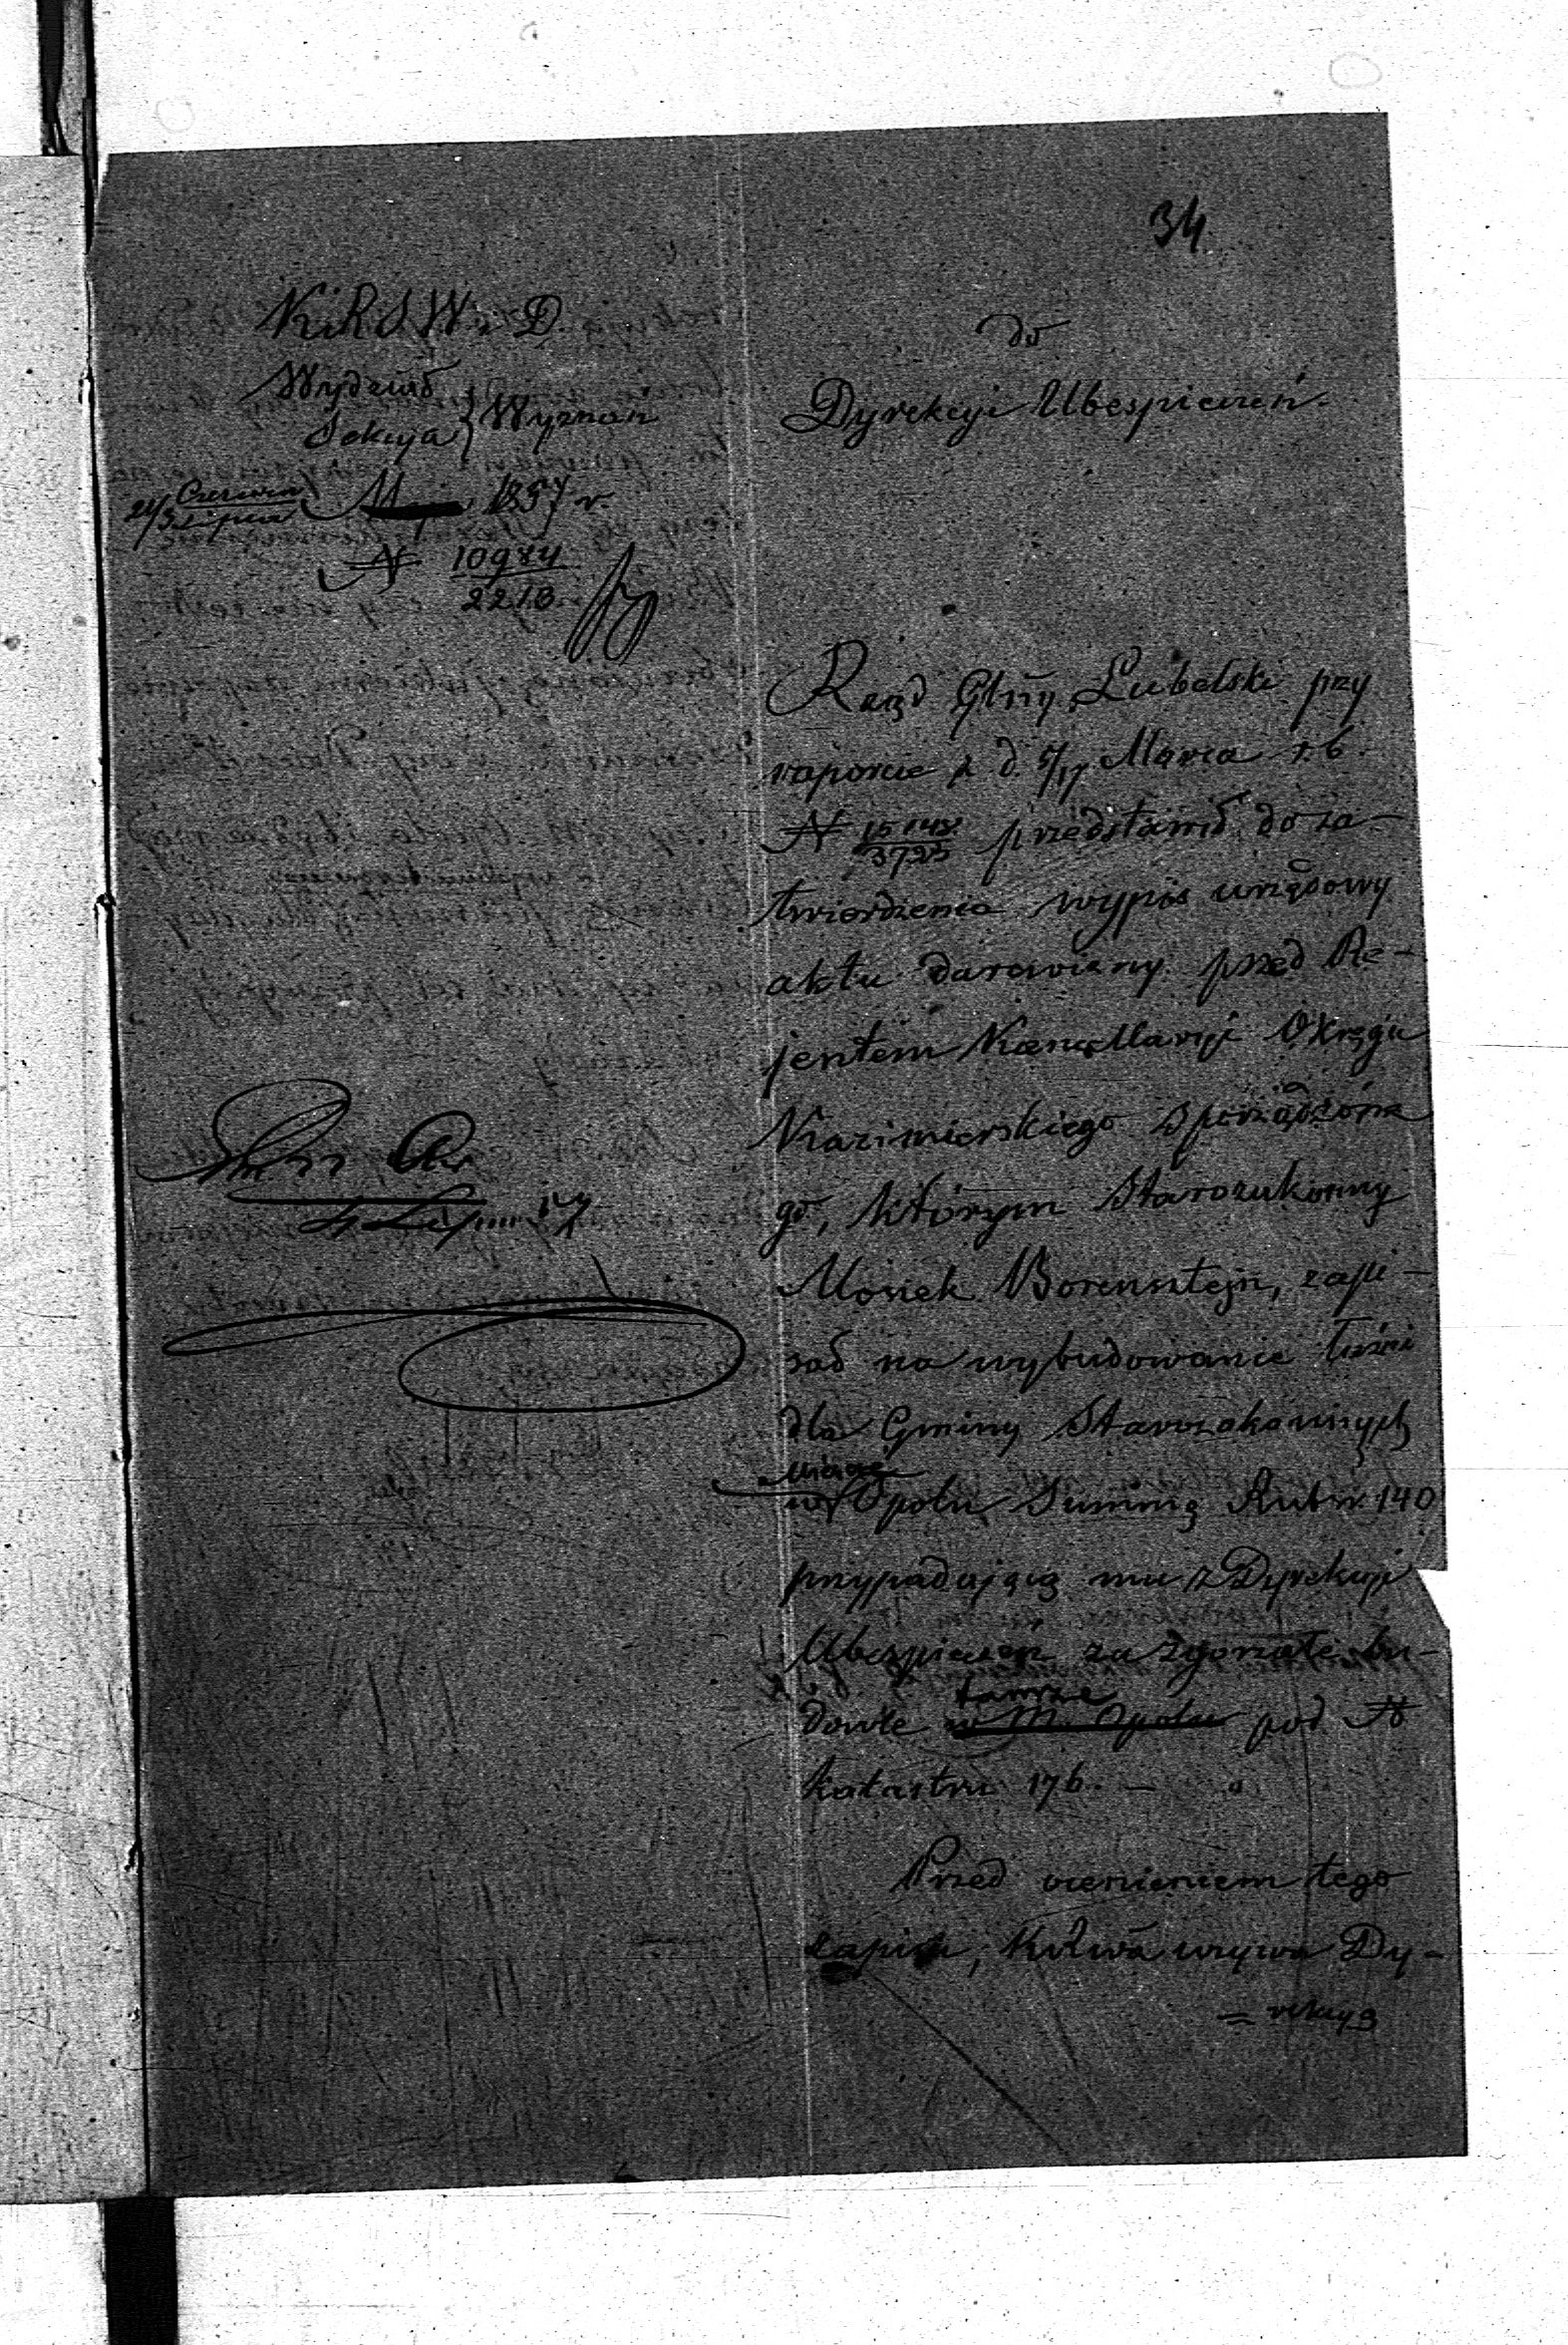 34
K.R.S.W. i D.
Wydział
Sekcya } Wyznań
21/3 Czerwca/Lipca 1857 r.
N 10984/2213
do
Dyrekcyi Ubespieczeń.
Rząd Glny Lubelski przy
raporcie z d. 5/17 Marca r. b.
N 15148/3723 przedstawił do za-
twierdzenia wypis urzędowy
aktu darowizny przed Re-
jentem Kancellaryi Okręgu
Kazimierskiego sporządzone
go, którym Starozakonny
Mosiek Borensztejn, zapi-
sał na wybudowanie łaźni
dla Gminy Starozakonnych
mieście
w Opolu Summę Rubsr. 140
przypadającą mu z Dyrekcyi
Ubespieczeń za zgorzałe bu-
tamże
dowle w M. Opolu pod N
katastru 176. —
Przed ocenieniem tego
zapisu, Kslwa wzywa Dy-
= rekcyą